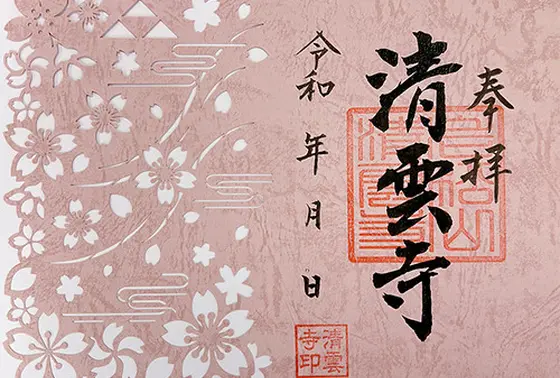 奉拝
清雲寺
令和 年 月 日
清雲
寺印